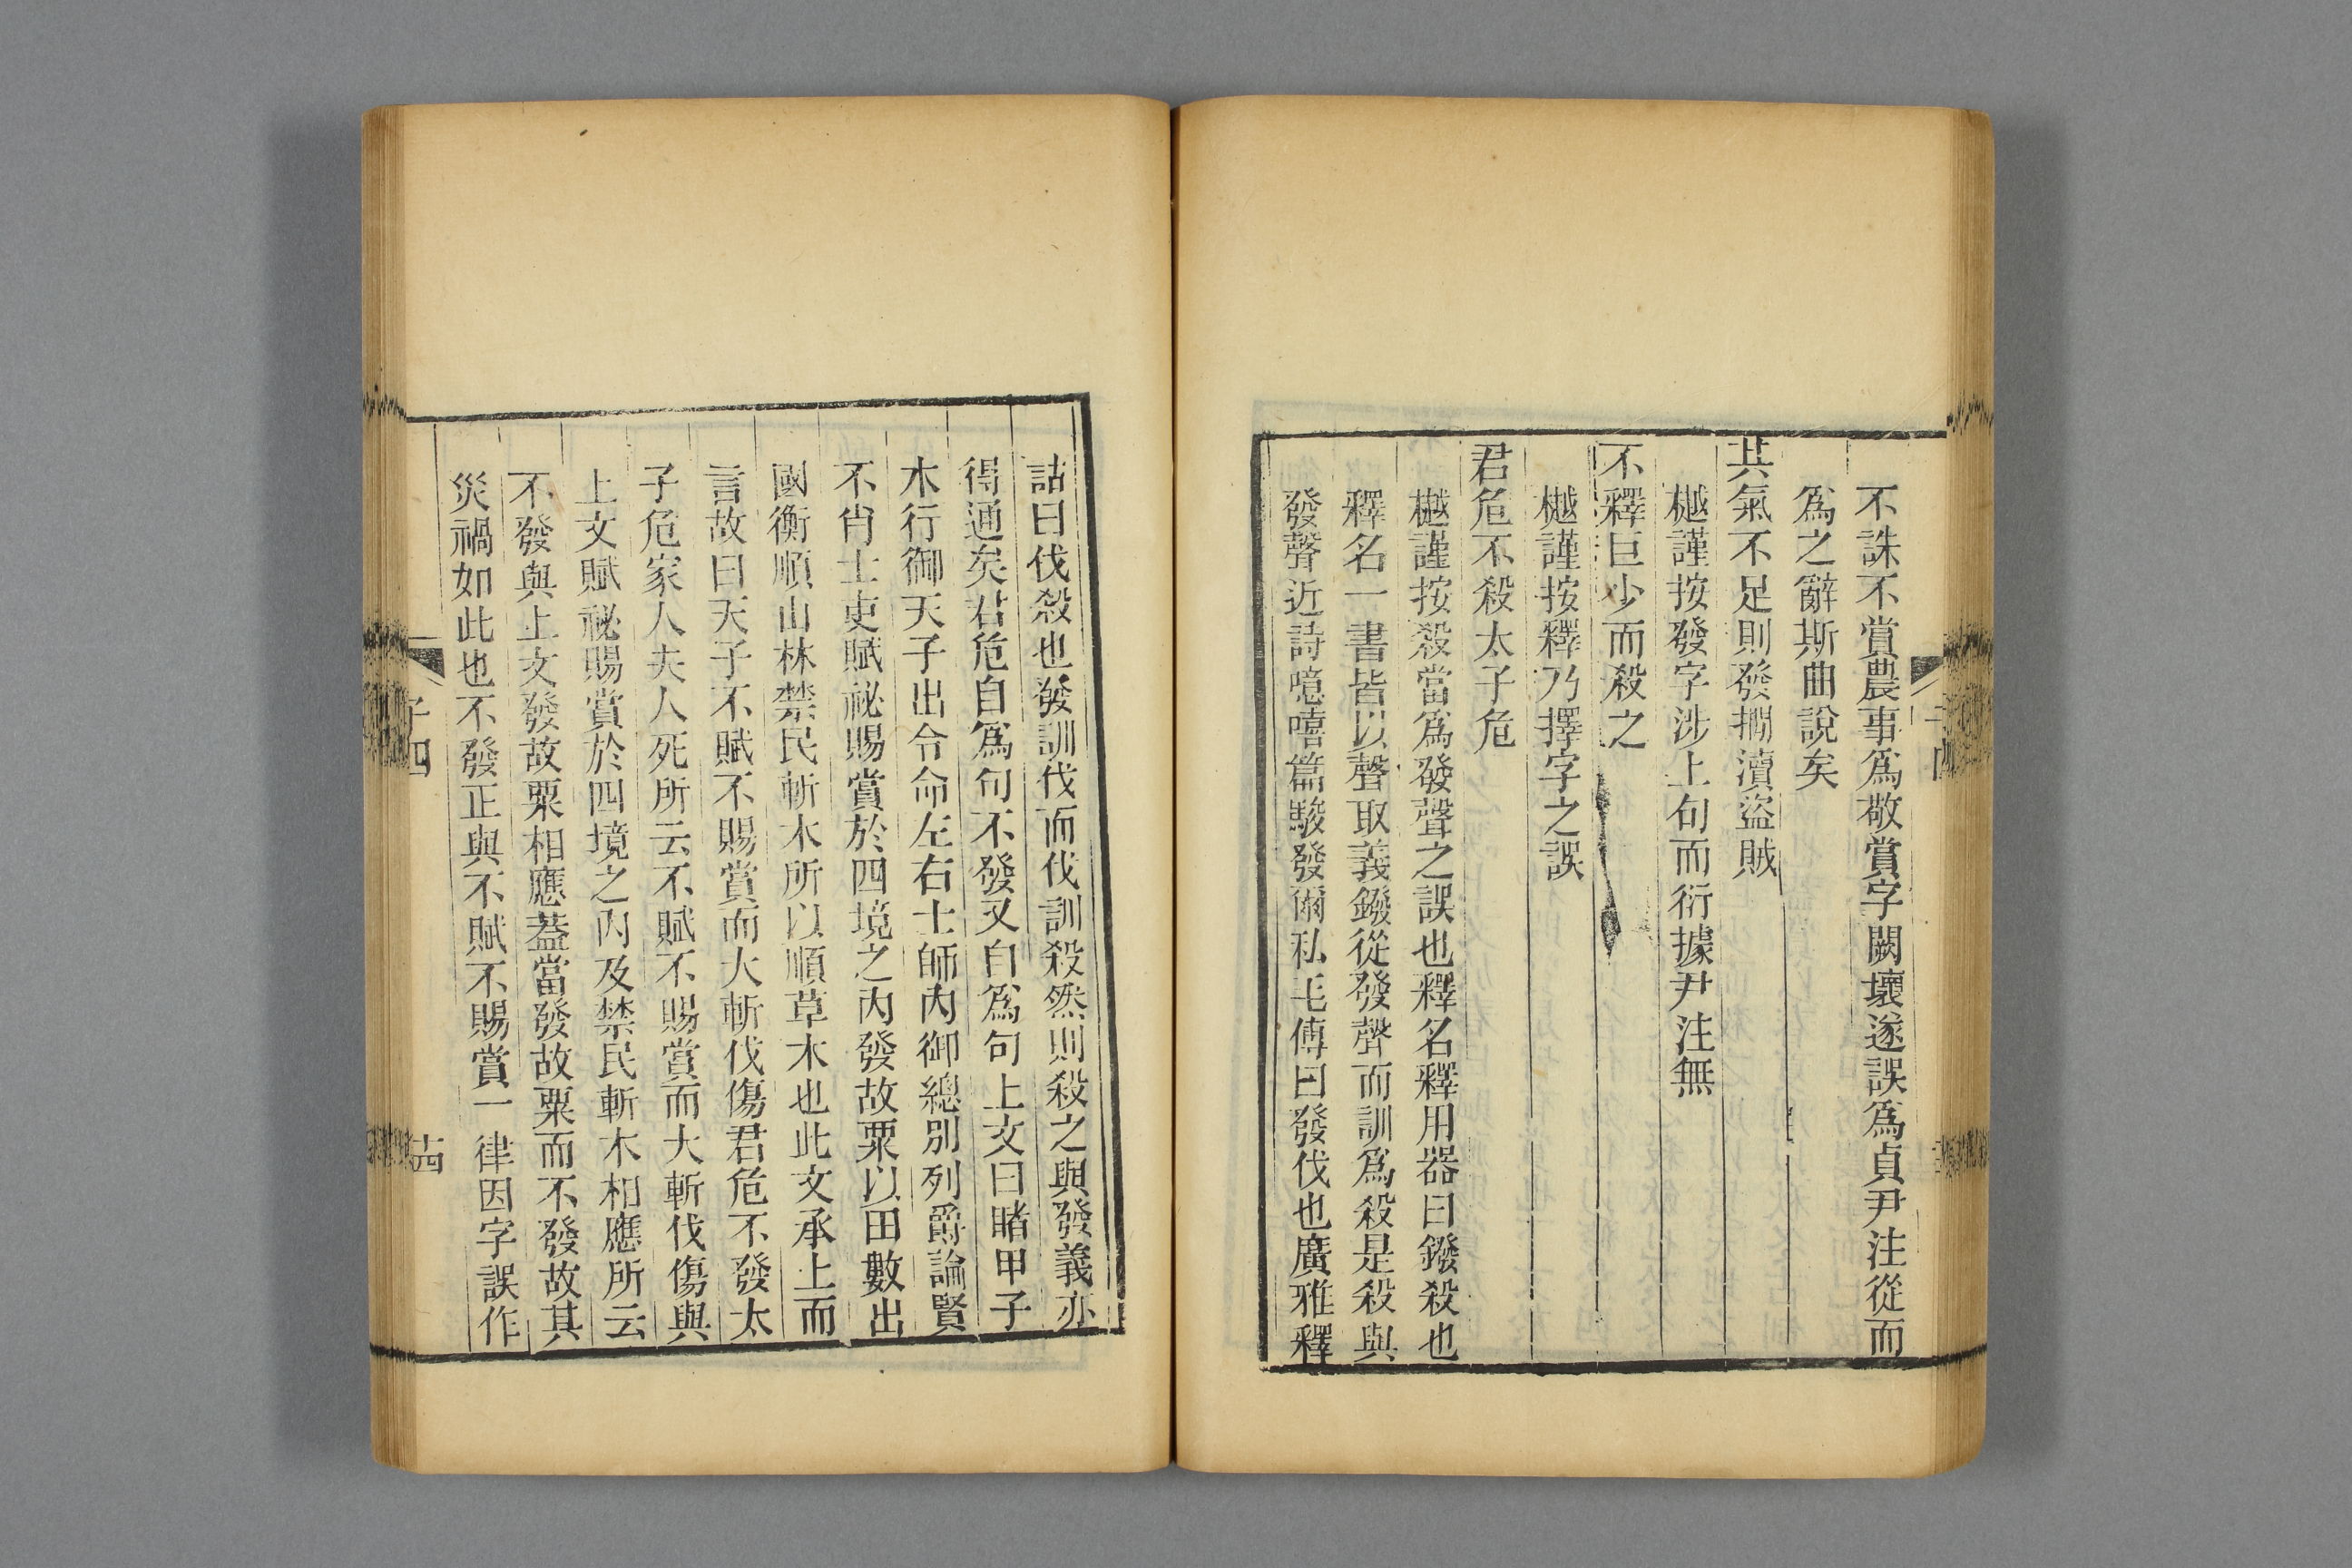 不誅不賞農事爲敬賞字闕壞遂誤爲貞尹注從而
爲之辭斯曲說矣
其氣不足則發撊瀆盜賊
樾謹按發字涉上句而衍據尹注無
不釋巨少而殺之
樾謹按釋乃擇字之誤
君危不殺太子危
樾謹按殺當爲發聲之誤也釋名釋用器曰鏺殺也
釋名一書皆以聲取義鏺從發聲而訓爲殺是殺與
發聲近詩噫嘻篇駿發爾私毛傳曰發伐也廣雅釋
詁曰伐殺也發訓伐而伐訓殺然則殺之與發義亦
得通矣君危自爲句不發又自爲句上文曰睹甲子
木行御天子出令命左右士師內御總別列爵論賢
不肖士吏賦祕賜賞於四境之內發故粟以田數出
國衡順山林禁民斬木所以順草木也此文承上而
言故曰天子不賦不賜賞而大斬伐傷君危不發太
子危家人夫人死所云不賦不賜賞而大斬伐傷與
上文賦祕賜賞於四境之內及禁民斬木相應所云
不發與上文發故粟相應蓋當發故粟而不發故其
災禍如此也不發正與不賦不賜賞一律因字誤作
子四
十四